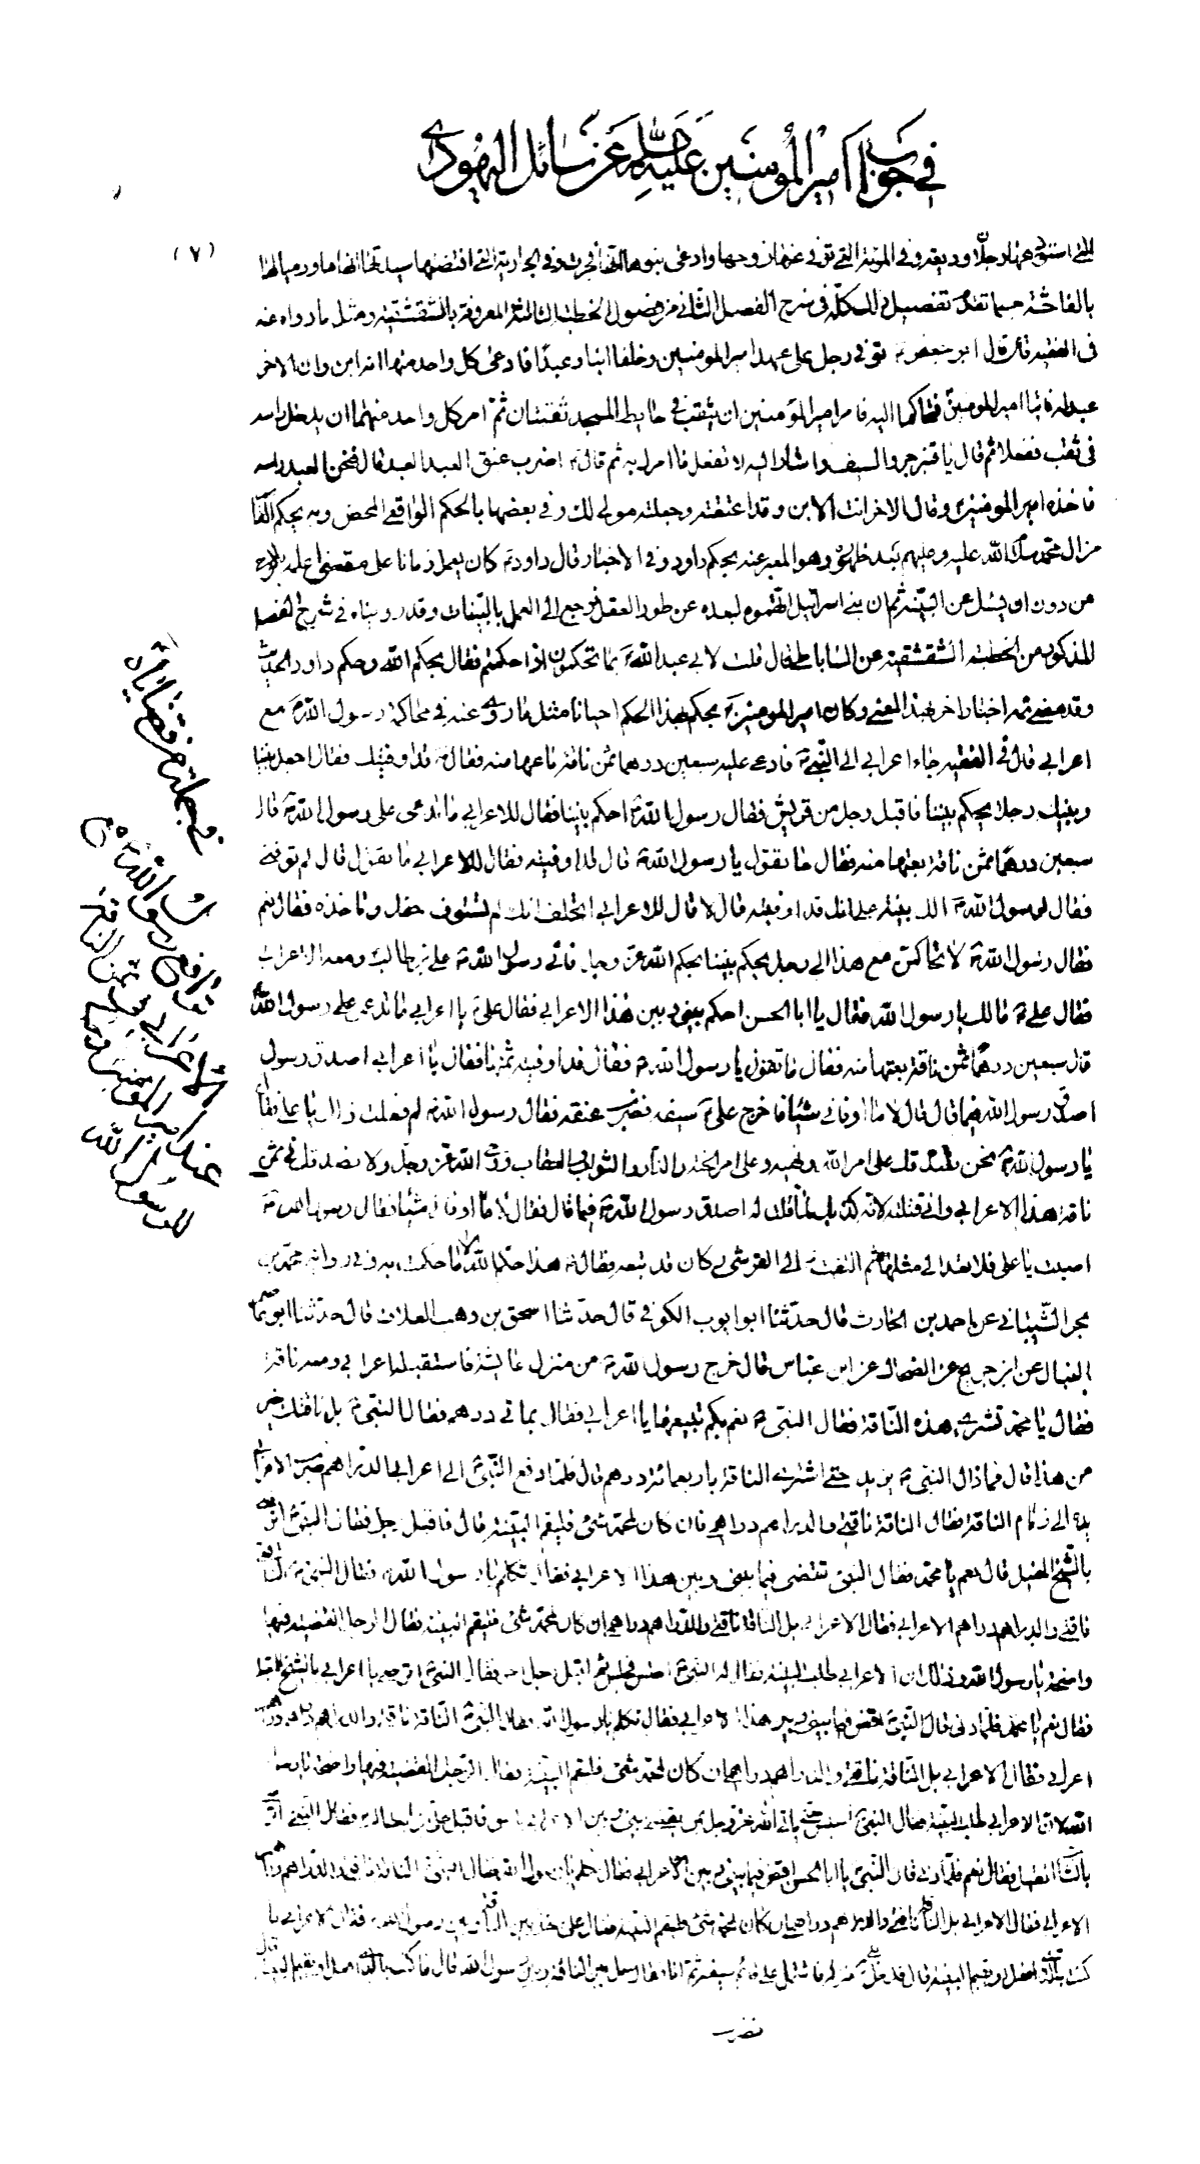 في جواب أمير المؤمنين عليه السلام عن مسائل اليهودي
(٧)
التي استودعها رجلان وديعة وفي المرئة التي توفى عنها زوجها وادعى بنوها انها فجرت وفي الجارية التي افتضتها سيدتها اتهاما ورميا لها
بالفاحشة حسبما تقدم تفصيل ذلك كله في شرح الفصل الثاني من فصول الخطبة الثالثة المعروفة بالشقشقية ومثل ما رواه عنه
في الفقيه قال قال ابو جعفر ع توفى رجل على عهد امير المومنين وخلف ابنا وعبدا فادعى كل واحد منهما انه ابن وان الاخر
عبد له فاتيا امير المومنين فتحاكما اليه فامر امير المؤمنين ان يثقب في حايط المسجد ثقبتان ثم امر كل واحد منهما ان يدخل راسه
في ثقب ففعلا ثم قال يا قنبر جرد السيف واشار اليه لا تفعل ما امرك به ثم قال اضرب عنق العبد قال فنحى العبد راسه
فاخذه امير المومنين وقال للاخر انت الابن وقد اعتقته وجعلته مولى لك وفي بعضها بالحكم الواقعي المحض وبه يحكم
من ال محمد صلى الله عليه وعليهم بعد ظهوره وهو المعبر عنه بحكم داود وفي الاخبار قال داود كان يعمل زمانا على مقتضى علمه
من دون ان يسئل عن البينة ثم ان بني اسرائيل اتهموه لبعده عن طور العقل فرجع الى العمل بالبينات وقد روينا في شرح الفصل
المذكور من الخطبة الشقشقية عن الساباطي قال قلت لابي عبد الله بما تحكمون اذا حكمتم فقال بحكم الله وحكم داود الحديث
وقد مضى ثمه اخبار اخر بهذا المعنى وكان امير المومنين يحكم بهذا الحكم احيانا مثل ما روى عنه في محاكمة رسول الله مع
اعرابي قال في الفقيه جاء اعرابي الى النبي فادعى عليه سبعين درهما ثمن ناقة باعها منه فقال قد اوفيتك فقال اجعل بيني
وبينك رجلا يحكم بيننا فاقبل رجل من قريش فقال رسول الله احكم بيننا فقال للاعرابي ما تدعى على رسول الله قال
سبعين درهما ثمن ناقة بعتها منه فقال ما تقول يا رسول الله قال قد اوفيته فقال للاعرابي ما تقول قال لم يوفني
فقال لرسول الله الك بينة على انك قد اوفيته قال لا قال للاعرابي اتحلف انك لم تستوف حقك وتاخذه فقال نعم
فقال رسول الله لاتحاكمن مع هذا الى رجل يحكم بيننا بحكم الله عز وجل فاتى رسول الله علي بن ابيطالب ومعه الاعرابي
فقال علي مالك يا رسول الله فقال يا ابا الحسن احكم بيني وبين هذا الاعرابي فقال علي يا اعرابي ما تدعى على رسول الله
قال سبعين درهما ثمن ناقة بعتها منه فقال ما تقول يا رسول الله فقال قد اوفيته ثمنها فقال يا اعرابي اصدق رسول
الله فيما قال قال لا ما اوفاني شيئا فاخرج علي سيفه فضرب عنقه فقال رسول الله لم فعلت ذلك يا علي فقال
يا رسول الله نحن نصدقك على امر الله ونهيه وعلى امر الجنة والنار والثواب والعقاب ووحى الله عز وجل ولا نصدقك في ثمن
ناقة هذا الاعرابي واني قتلته لانه كذبك لما قلت له اصدق رسول الله فيما قال فقال لا ما اوفاني شيئا فقال رسول الله
اصبت يا علي فلا تعد الى مثلها ثم التفت الى القرشي وكان قد تبعه فقال هذا حكم الله لا ما حكمت به وفي رواية محمد بن
بحر الشيباني عن احمد بن الحارث قال حدثنا ابو ايوب الكوفي قال حدثنا اسحق بن وهب العلاف قال حدثنا ابو عاصم
النبال عن ابن جريج عن الضحاك عن ابن عباس قال خرج رسول الله من منزل عايشة فاستقبله اعرابي ومعه ناقة
فقال يا محمد تشترى هذه الناقة فقال النبي نعم بكم تبيعها يا اعرابي فقال بماتى درهم فقال النبي بل ناقتك خير
من هذا قال فما زال النبي يزيد حتى اشترى الناقة باربعمائة درهم قال فلما دفع النبي الى اعرابي الدراهم ضرب الاعرابي
يده الى زمام الناقة فقال الناقة ناقتي والدراهم دراهمي فان كان لمحمد شئ فليقم البينة قال فاقبل رجل فقال النبي اترضى
بالشيخ المقبل قال نعم يا محمد فقال النبي تقضى فيما بيني وبين هذا الاعرابي فقال تكلم يا رسول الله فقال النبي الناقة
ناقتي والدراهم دراهم الاعرابي فقال الاعرابي بل الناقة ناقتي والدراهم دراهمي ان كان لمحمد شئ فليقم البينة فقال الرجل القضية فيها
واضحة يا رسول الله وذلك ان الاعرابي طلب البينة فقال له النبي اجلس فجلس ثم اقبل رجل اخر فقال النبي اترضى يا اعرابي بالشيخ المقبل
فقال نعم يا محمد فلما دنى قال النبي اقض فيما بيني وبين هذا الاعرابي فقال تكلم يا رسول الله فقال النبي الناقة ناقتي والدراهم دراهم
اعرابي فقال الاعرابي بل الناقة ناقتي والدراهم دراهمي ان كان لمحمد شئ فليقم البينة فقال الرجل القضية فيها واضحة يا رسول
الله لان الاعرابي طلب البينة فقال النبي اجلس حتى ياتى الله عز وجل بمن يقضى بيني وبين الاعرابي بالحق فاقبل علي بن ابيطالب فقال النبي اترضى
بالشاب المقبل فقال نعم فلما دنى قال النبي يا ابا الحسن اقض فيما بيني وبين الاعرابي فقال تكلم يا رسول الله فقال النبي الناقة ناقتي والدراهم دراهم
الاعرابي فقال الاعرابي بل الناقة ناقتي والدراهم دراهمي ان كان لمحمد شئ فليقم البينة فقال علي خل بين الناقة وبين رسول الله فقال الاعرابي ما
كنت بالذى افعل او يقيم البينة قال فدخل علي منزله فاشتمل على قائم سيفه ثم اتى فقال خل بين الناقة وبين رسول الله قال ما كنت بالذى افعل او يقيم البينة
فضربه
في جملة من قضاياه
ترافع رسول الله ص
الاعرابي في ثمن الناقة
عند امير المومنين
لرسول الله